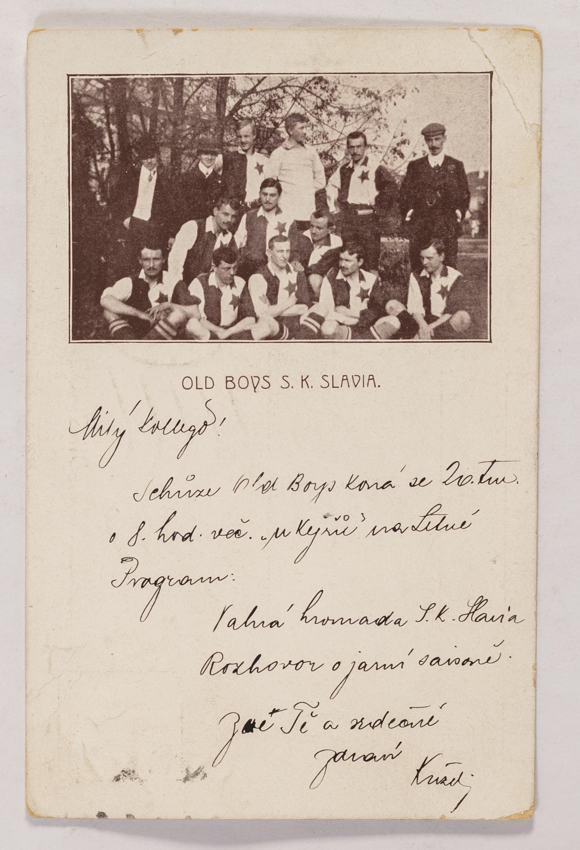 OLD BOYS S. K. SLAVIA.
Milý kollego!
Schůze Old Boys koná se 20. t.m.
o 8. hod. več. „u Kejřů" na Letné
Program:
Valná hromada S.K. Slavia
Rozhovor o jarní saisoně.
Zve Tě a srdečně
zdraví